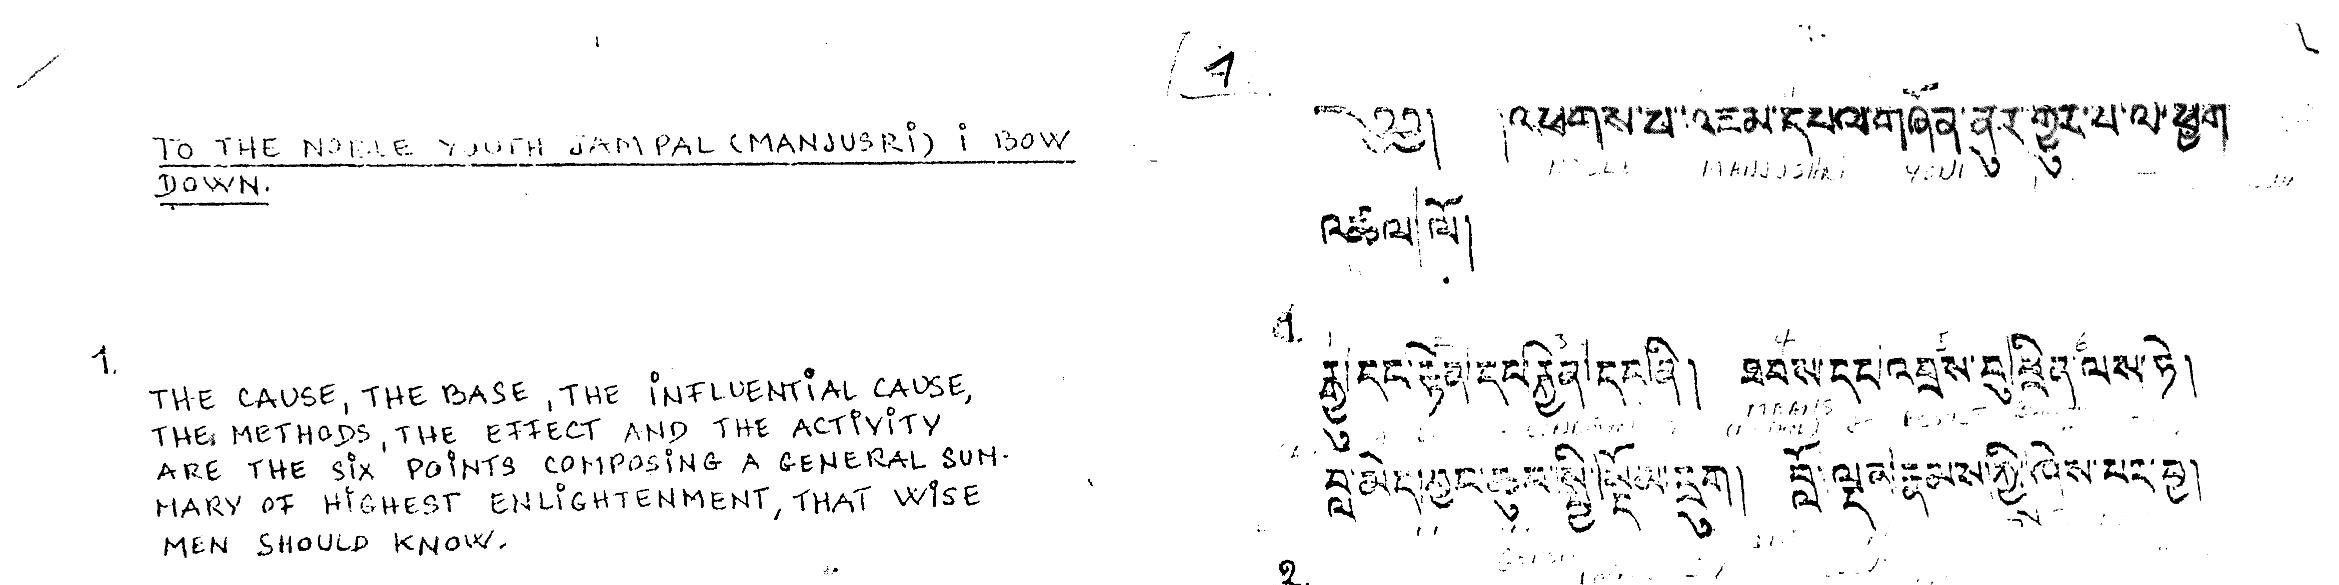 TO THE NOBLE YOUTH JAMPAL (MANJUSRI) I BOW
DOWN.
1.
THE CAUSE, THE BASE, THE INFLUENTIAL CAUSE,
THE METHODS, THE EFFECT AND THE ACTIVITY
ARE THE SIX POINTS COMPOSING A GENERAL SUM-
MARY OF HIGHEST ENLIGHTENMENT, THAT WISE
MEN SHOULD KNOW.
1
༄༅། །འཕགས་པ་འཇམ་དཔལ་གཞོན་ནུར་གྱུར་པ་ལ་ཕྱག
MANJUSHRI
འཚལ་ལོ།
1.
1 3 4 5 6
རྒྱུ་དང་རྟེན་དང་རྐྱེན་དང་ནི། ཐབས་དང་འབྲས་བུ་ཕྲིན་ལས་ཏེ།
MEANS
བླ་མེད་བྱང་ཆུབ་སྤྱི་སྡོམ་དྲུག །བློ་ལྡན་རྣམས་ཀྱི་ཤེས་པར་བྱ།
2.